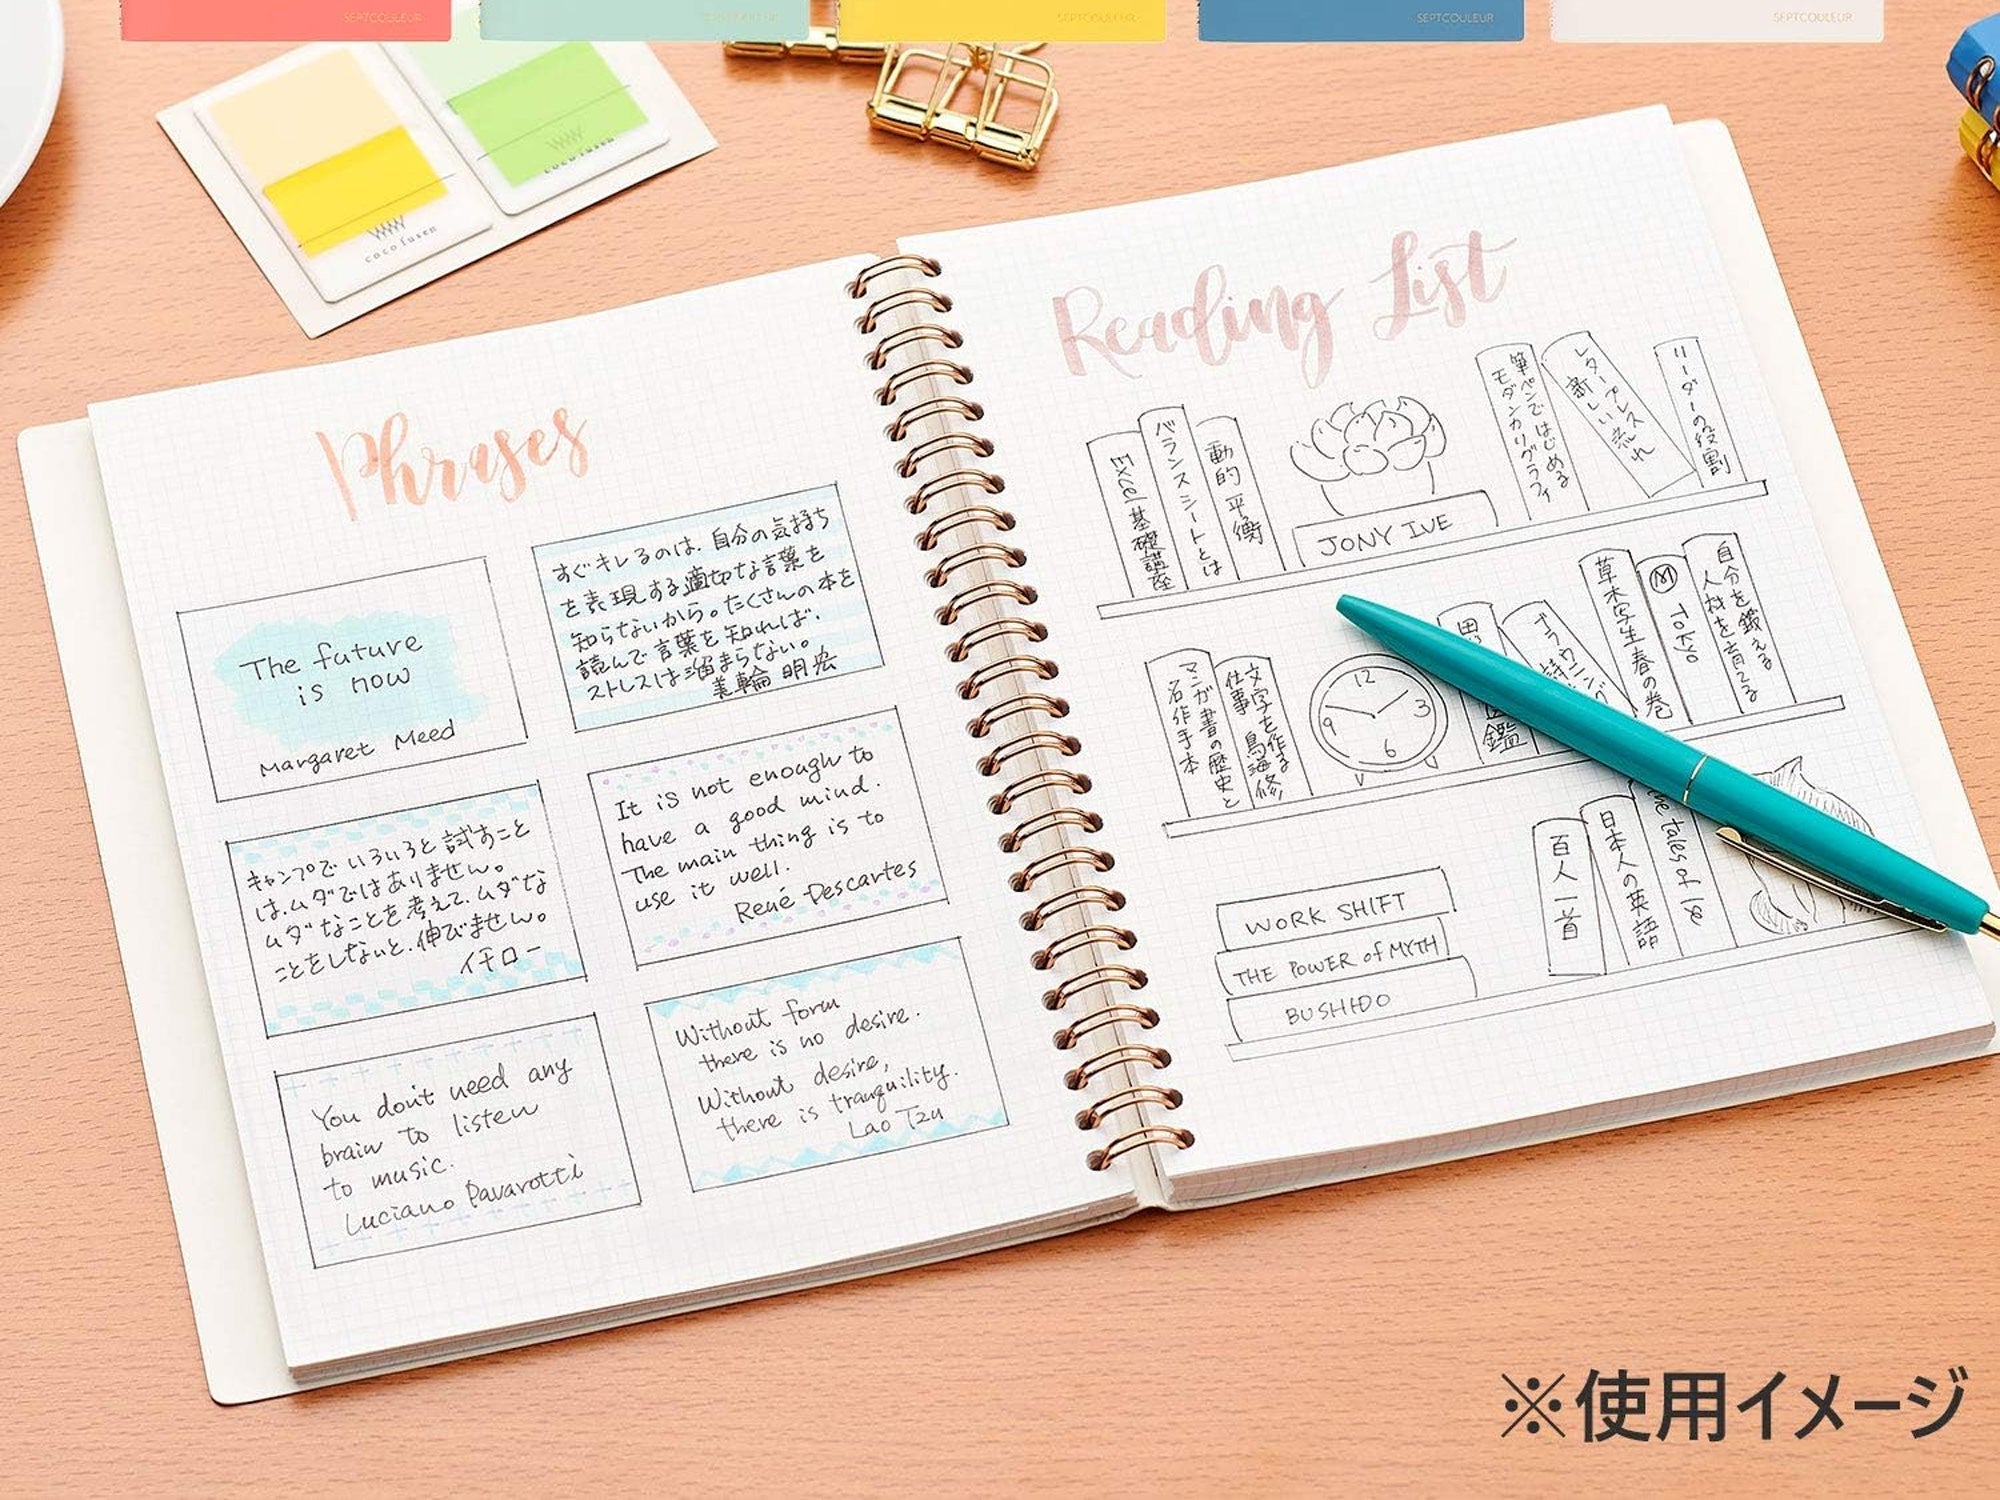 SEPTCOULEUR
SEPTCOULEUR
SEPTCOULEUR
SEPTCOULEUR
SEPTCOULEUR
coco fusen
coco fusen
Phrases
The future
is now
Margaret Meed
すぐキレるのは、自分の気持ち
を表現する適切な言葉を
知らないから。たくさんの本を
読んで言葉を知れば、
ストレスは溜まらない。
美輪明宏
キャンプでいろいろと試すこと
は、ムダではありません。
ムダなことを考えて、ムダな
ことをしないと、伸びません。
イチロー
It is not enough to
have a good mind.
The main thing is to
use it well.
René Descartes
You don't need any
brain to listen
to music.
Luciano Pavarotti
Without form
there is no desire.
Without desire,
there is tranquility.
Lao Tzu
Reading List
Excel基礎講座
バランスシートとは
動的平衡
JONY IVE
筆ペンではじめる
モダンカリグラフィ
レタープレス
新しい流れ
リーダーの役割
マンガ書の歴史と
名作手本
文字を作る
仕事 鳥海修
12
3
6
9
鑑
草木写生 春の巻
M
Tokyo
自分を鍛える
人材を育てる
WORK SHIFT
THE POWER of MYTH
BUSHIDO
百人一首
日本人の英語
the tales of Ise
※使用イメージ